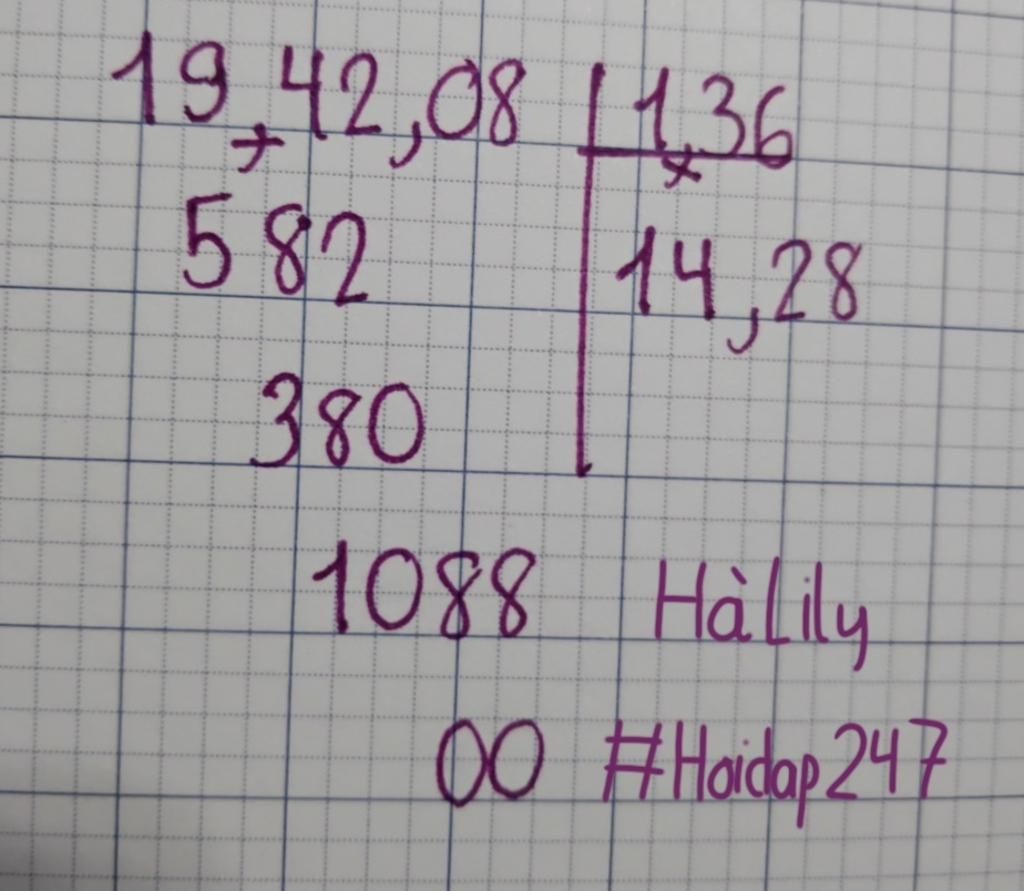 19,42,08 1,36
582 14,28
380
1088 Hà Lily
00 #Hoidap247